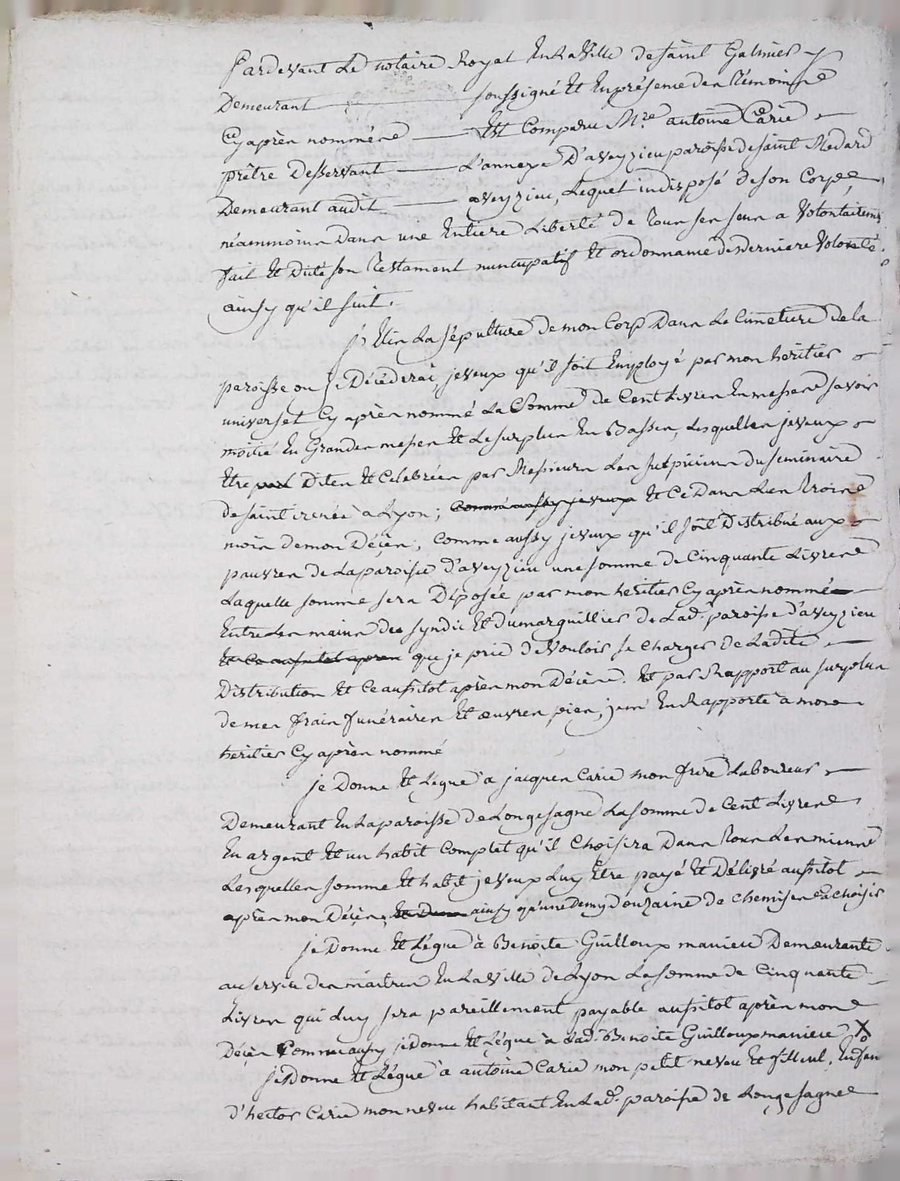 Pardevant Le notaire Royal En la Ville de saint Galmier
Demeurant soussigné Et En présence des Témoins
Cy après nommés Est Comparu Mre antoine Carié
prêtre Desservant L'annexe D'aveyzieu paroisse de saint Medard
Demeurant audit aveyzieu, Lequel indisposé de son Corps,
néammoins Dans une Entiere Liberté de Tous ses sens a Volontairemt
fait Et Dicté son Testament nuncupatif Et ordonnance de Derniere Volonté
ainsy qu'il suit.
j'Elis La sépulture de mon Corp Dans Le Cimetiere de la
paroisse ou je Décéderai, je veux qu'il soit Employé par mon heritier
universel Cy après nommé La Somme de Cent Livres En messes savoir
moitié En Grandes messes Et Le surplus En Basses, Lesquelles je veux
Etre Dites Et Celebrées par Messieurs Les sulpiciens du seminaire
de saint irenée a Lyon; Comme aussy je veux Et Ce Dans Les Trois
mois de mon Décès; Comme aussy je veux qu'il soit Distribué aux
pauvres de La paroisse d'aveyzieu une somme de Cinquante Livres
Laquelle somme sera Déposée par mon heritier Cy après nommé
Entre Les mains des syndic Et du marguillier de Lad. paroisse d'aveyzieu
Et Ce aussitot apres que je prie de Vouloir se Charger de Ladite
Distribution Et Ce aussitot après mon Décès. Et par Rapport au surplus
de mes frais funéraires Et œuvres pies, j'en En Rapporte a mon
heritier Cy après nommé
je Donne Et Légue à jacques Carié mon frere Laboureur
Demeurant En La paroisse de Longesagne La somme de Cent Livres
En argent Et un habit Complet qu'il Choisira Dans Tous Les miens
Lesquelles somme Et habit je veux Luy Etre payé Et Délivré aussitot
après mon Décès, ainsy qu'une Demy Douzaine de Chemises a choisir
je Donne Et Légue à Benoite Guilloux maniere Demeurante
au service des maitres En La Ville de Lyon La somme de Cinquante
Livres qui Luy sera pareillement payable aussitot après mon
Décès Comme aussy je donne Et Légue à Lad. Benoite Guilloux maniere X
je Donne Et Légue à antoine Carié mon petit neveu Et filleul,
d'hector Carié mon neveu habitant En Lad. paroisse de Longesagne